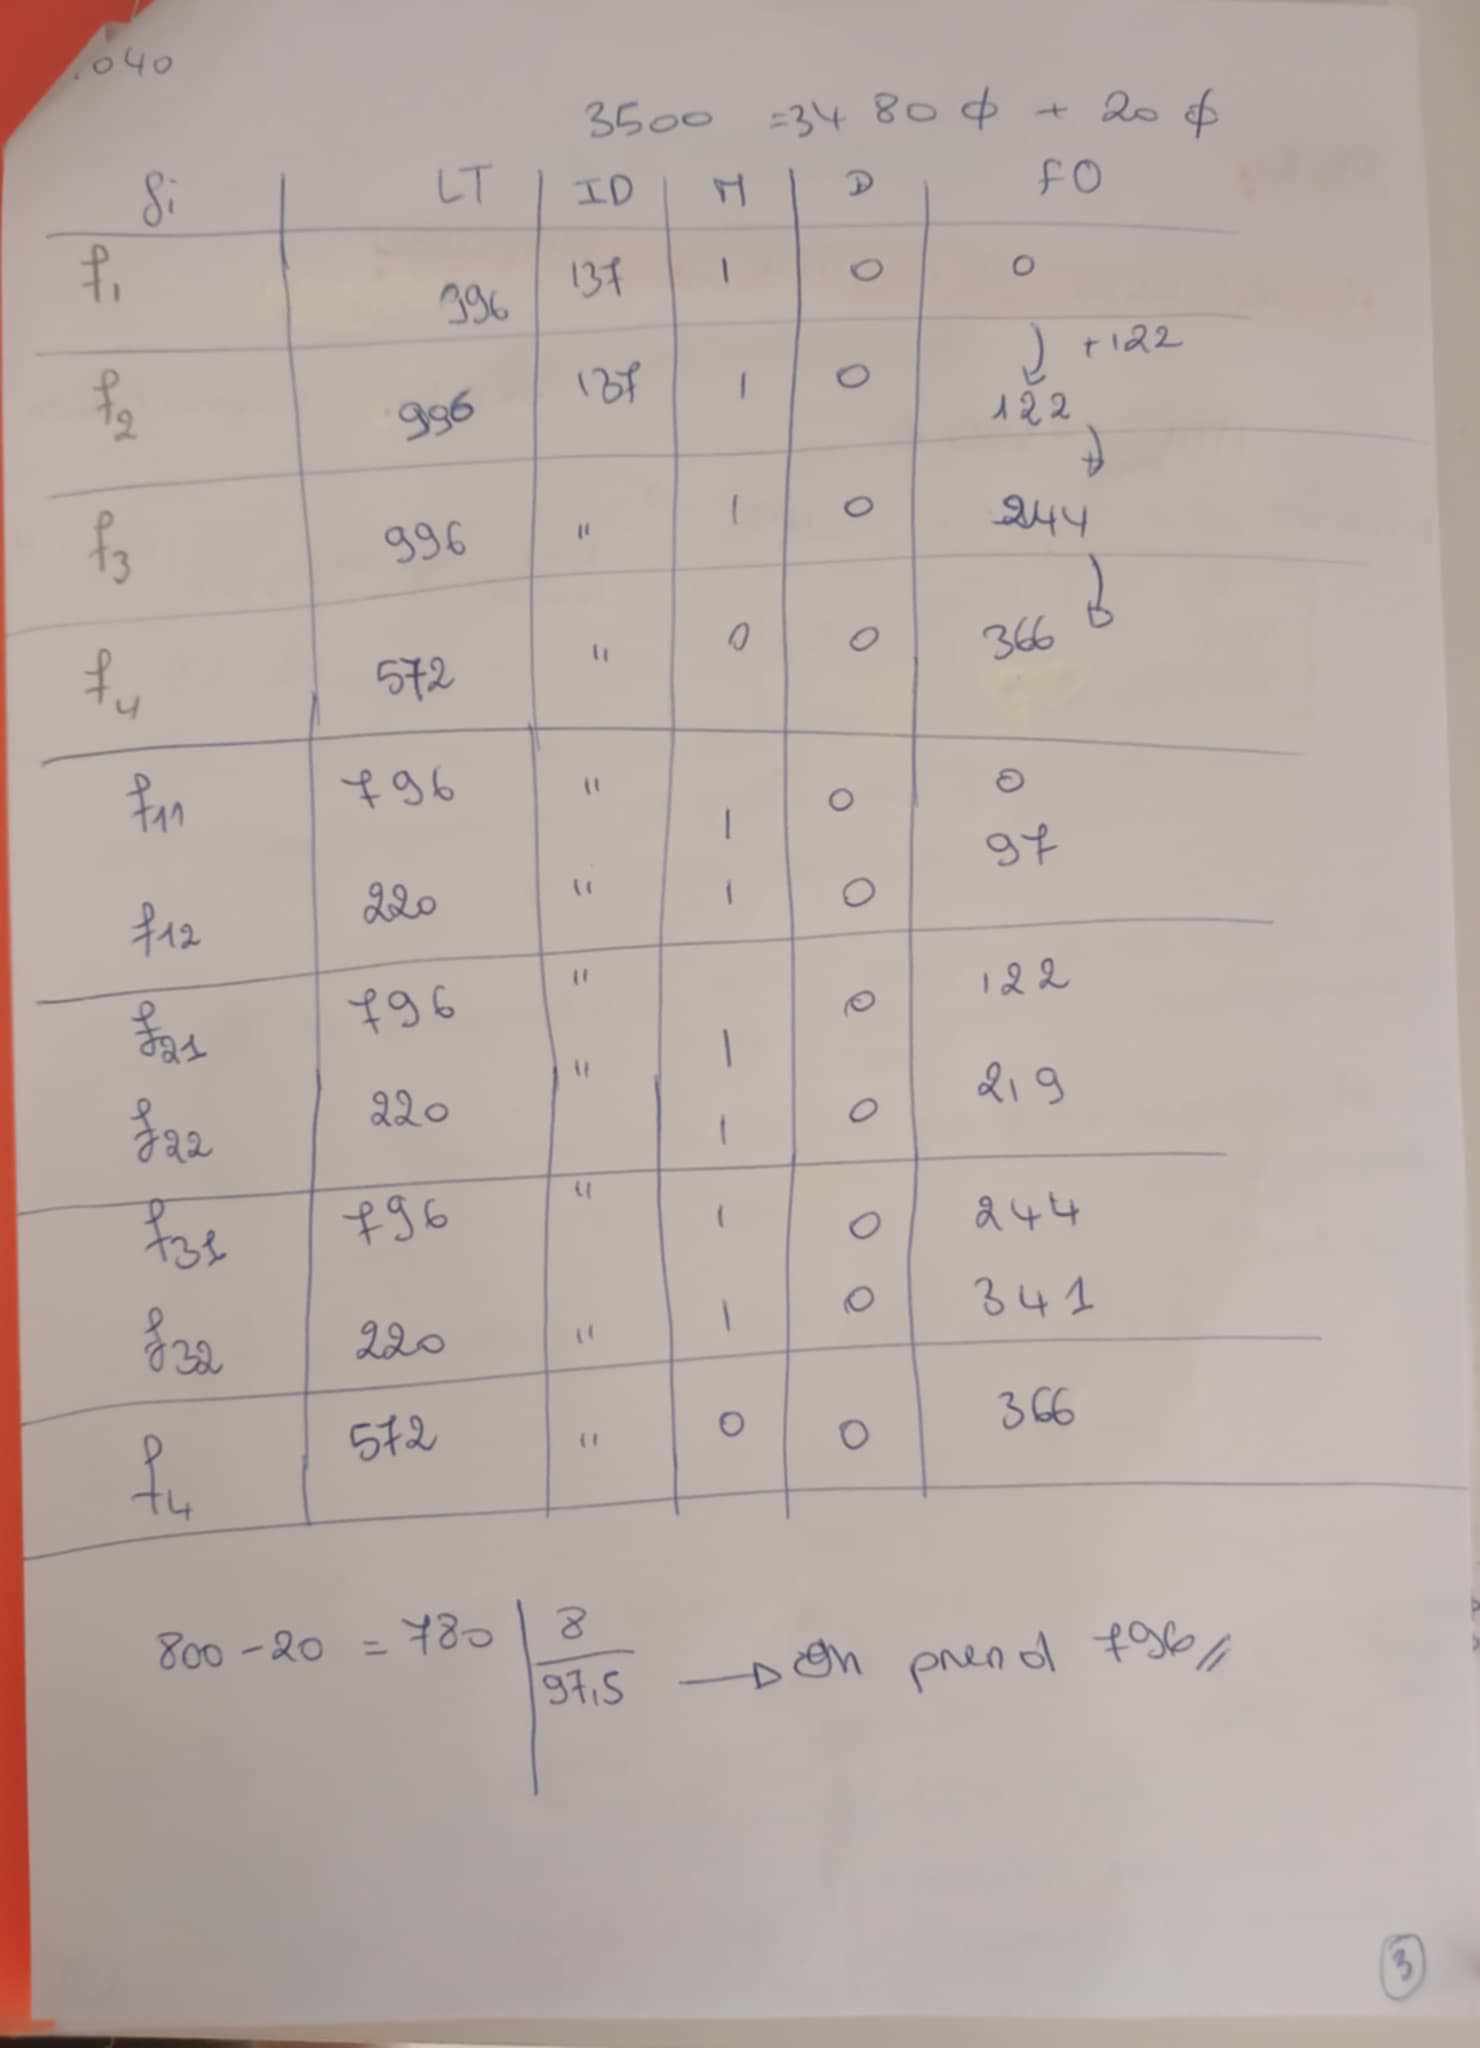 .040
3500 =3480 ϕ + 20 ϕ
fi LT ID M D FO
f1 996 137 1 0 0
+122
f2 996 137 1 0 122
f3 996 " 1 0 244
f4 572 " 0 0 366
f11 796 " 1 0 0
f12 220 " 1 0 97
f21 796 " 1 0 122
f22 220 " 1 0 219
f31 796 " 1 0 244
f32 220 " 1 0 341
f4 572 " 0 0 366
800-20 = 780 | 8
97,5 → On prend 796//
3